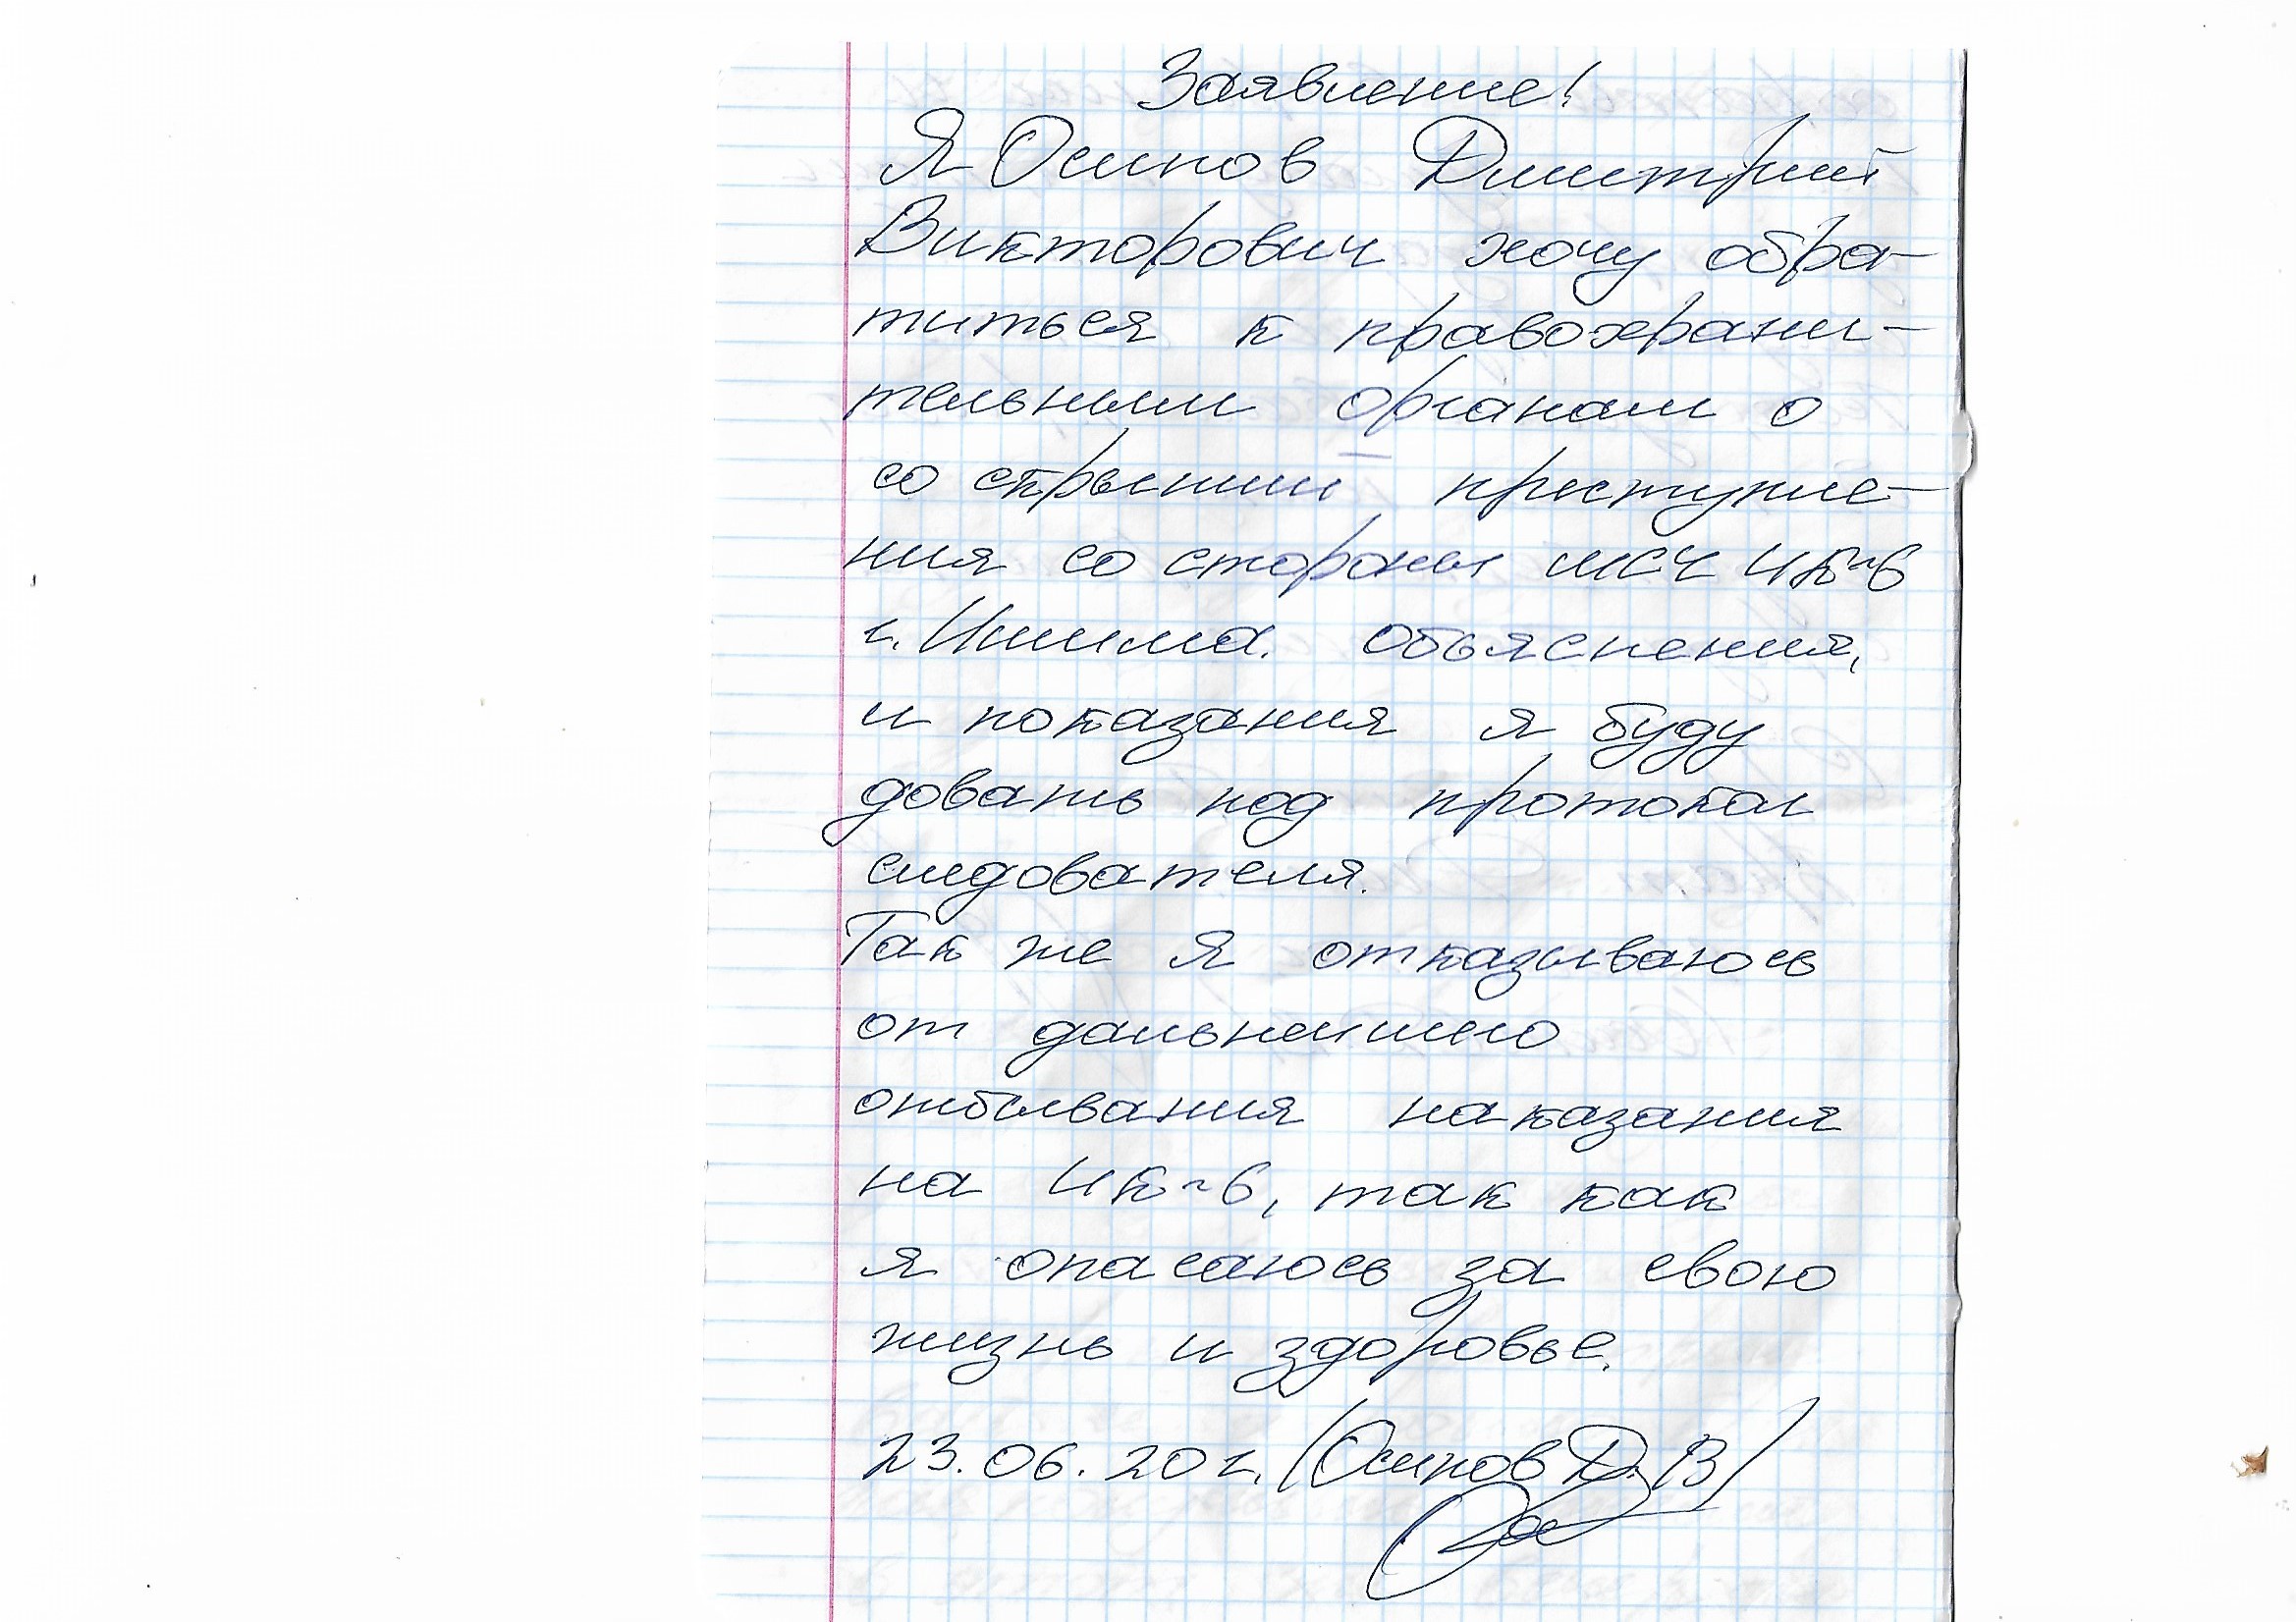 Заявление!
Я Осипов Дмитрий
Викторович хочу обра-
титься к правохрани-
тельными органам о
со скрытий преступле-
ния со стороны МСЧ ИК-6
г. Ишима. Обьяснения,
и показания я буду
довать под протокол
следователя.
Так же я отказываюсь
от дальнейшего
отбывания наказания
на ИК-6, так как
я опасаюсь за свою
жизнь и здоровье.
23.06.20 г. (Осипов Д. В)